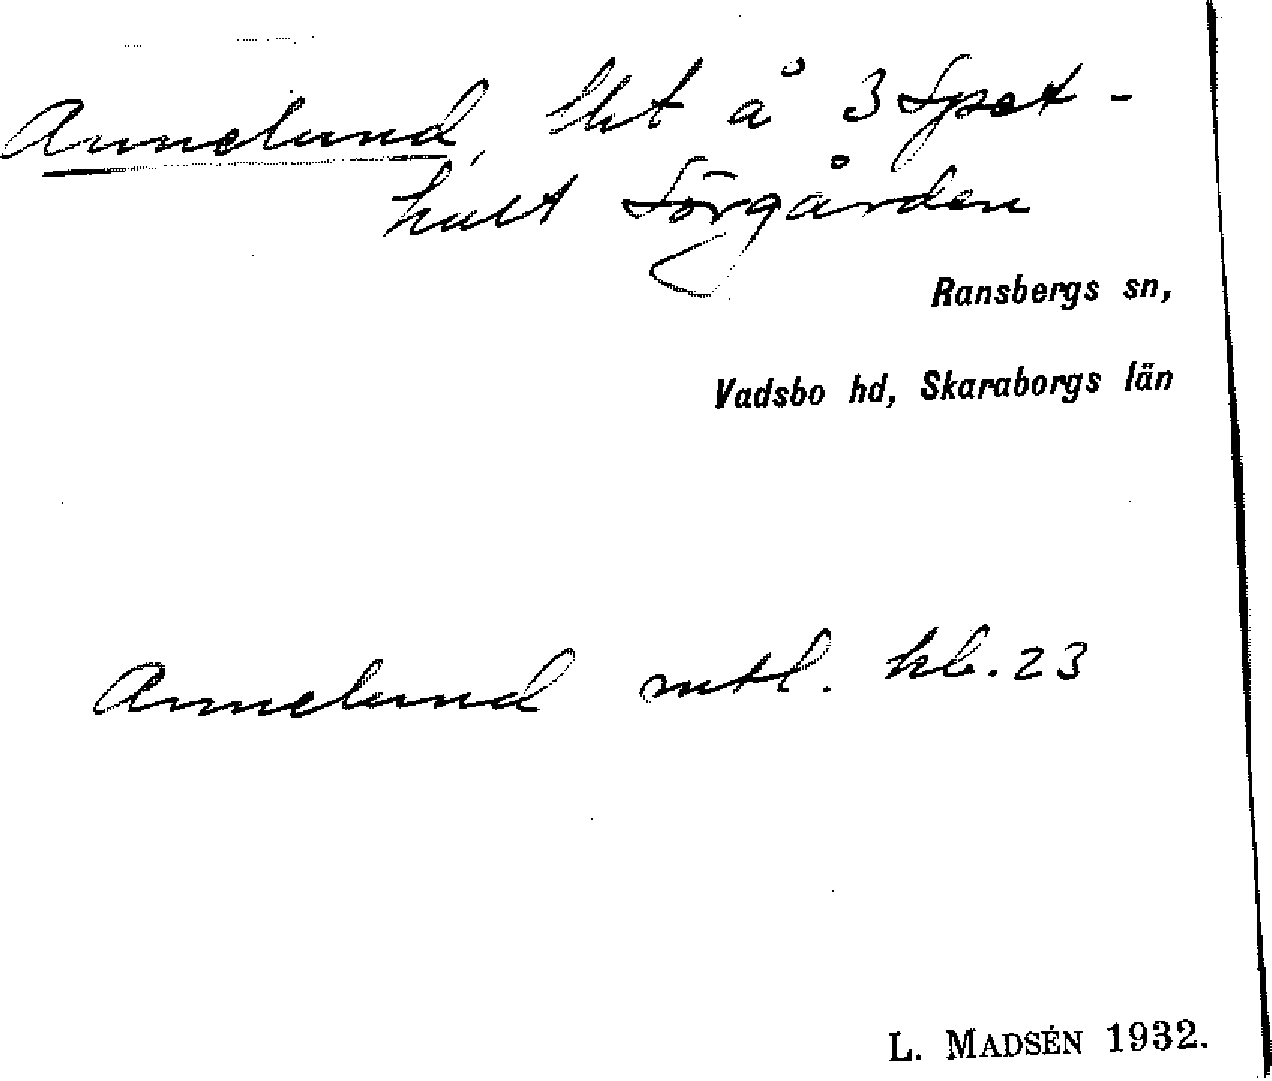 Annelund, lht å 3 Spet-
hult Sörgården
Ransbergs sn,
Vadsbo hd, Skaraborgs län
Annelund mtl. hb. 23
L. MADSÉN 1932.